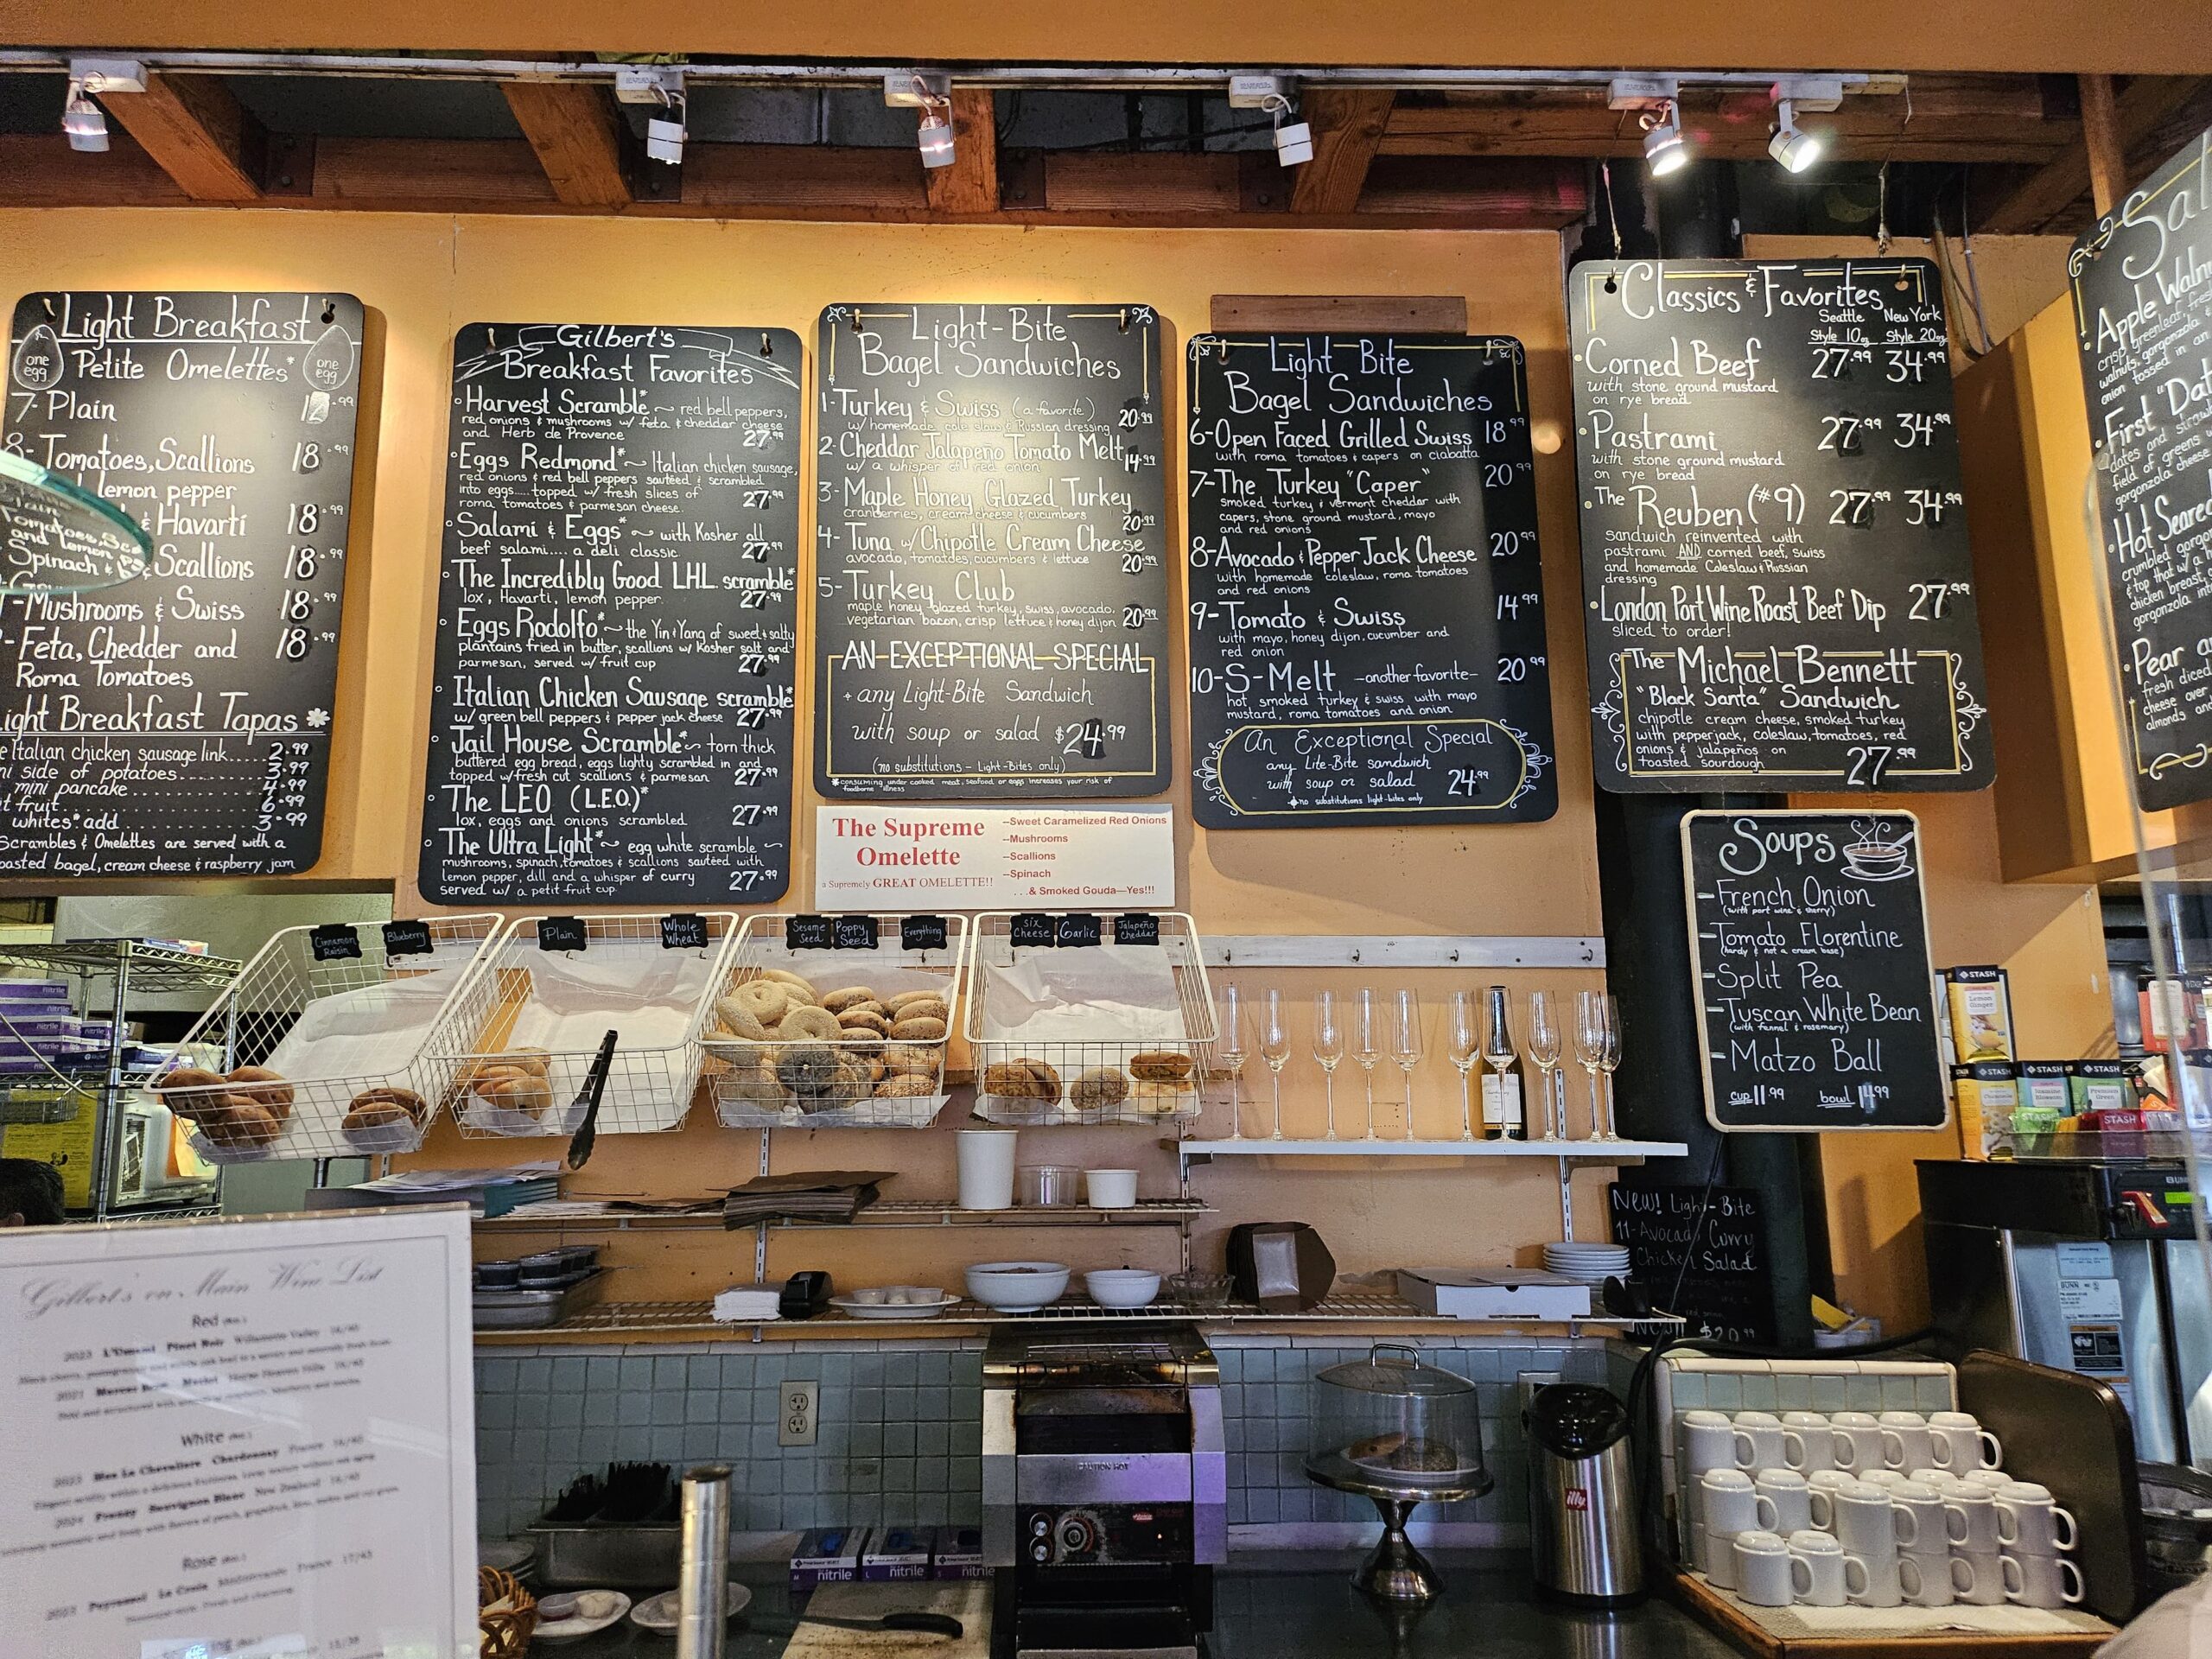 Light Breakfast
one egg
Petite Omelettes*
one egg
7- Plain
.99
8-Tomatoes, Scallions 18.99
lemon pepper
& Havarti 18.99
& Scallions 18.99
-Mushrooms & Swiss 18.99
-Feta, Chedder and 18.99
Roma Tomatoes
Light Breakfast Tapas *
Italian chicken sausage link..... 2.99
side of potatoes........ 3.99
mini pancake........ 4.99
fruit ........ 6.99
whites* add........ 3.99
Scrambles & Omelettes are served with a
toasted bagel, cream cheese & raspberry jam
Gilbert's
Breakfast Favorites
• Harvest Scramble* ~ red bell peppers,
red onions & mushrooms w/ feta & cheddar cheese
and Herb de Provence 27.99
• Eggs Redmond* ~ Italian chicken sausage,
red onions & red bell peppers sautéed & scrambled
into eggs.....topped w/ fresh slices of 27.99
roma tomatoes & parmesan cheese.
• Salami & Eggs* ~ with Kosher all
beef salami.... a deli classic. 27.99
• The Incredibly Good LHL scramble*
lox, Havarti, lemon pepper. 27.99
• Eggs Rodolfo* ~ the Yin & Yang of sweet & salty
plantains fried in butter, scallions w/ Kosher salt and
parmesan, served w/ fruit cup 27.99
• Italian Chicken Sausage scramble*
w/ green bell peppers & pepper jack cheese 27.99
• Jail House Scramble* ~ torn thick
buttered egg bread, eggs lighty scrambled in and
topped w/ fresh cut scallions & parmesan 27.99
• The LEO (L.E.O.)*
lox, eggs and onions scrambled 27.99
• The Ultra Light* ~ egg white scramble ~
mushrooms, spinach, tomatoes & scallions sautéed with
lemon pepper, dill and a whisper of curry
served w/ a petit fruit cup. 27.99
Light-Bite
Bagel Sandwiches
1-Turkey & Swiss (a favorite) 20.99
w/ homemade cole slaw & Russian dressing
2-Cheddar Jalapeño Tomato Melt 14.99
w/ a whisper of red onion
3-Maple Honey Glazed Turkey
cranberries, cream cheese & cucumbers 20.99
4-Tuna w/Chipotle Cream Cheese
avocado, tomatoes, cucumbers & lettuce 20.99
5-Turkey Club
maple honey glazed turkey, swiss, avocado,
vegetarian bacon, crisp lettuce & honey dijon 20.99
AN EXCEPTIONAL SPECIAL
+ any Light-Bite Sandwich
with soup or salad $24.99
(no substitutions - Light-Bites only)
*consuming under cooked meat, seafood or eggs increases your risk of
foodborne illness
The Supreme
Omelette
a Supremely GREAT OMELETTE!!
--Sweet Caramelized Red Onions
--Mushrooms
--Scallions
--Spinach
...& Smoked Gouda—Yes!!!
Light Bite
Bagel Sandwiches
6-Open Faced Grilled Swiss 18.99
with roma tomatoes & capers on ciabatta
7-The Turkey "Caper" 20.99
smoked turkey & vermont cheddar with
capers, stone ground mustard, mayo
and red onions
8-Avocado & Pepper Jack Cheese 20.99
with homemade coleslaw, roma tomatoes
and red onions
9-Tomato & Swiss 14.99
with mayo, honey dijon, cucumber and
red onion
10-S-Melt -another favorite- 20.99
hot smoked turkey & swiss with mayo
mustard, roma tomatoes and onion
An Exceptional Special
any Lite-Bite sandwich
with soup or salad 24.99
no substitutions light-bites only
Classics & Favorites
Seattle New York
Style 10oz Style 20oz
• Corned Beef 27.99 34.99
with stone ground mustard
on rye bread
• Pastrami 27.99 34.99
with stone ground mustard
on rye bread
• The Reuben (#9) 27.99 34.99
sandwich reinvented with
pastrami AND corned beef, swiss
and homemade Coleslaw & Russian
dressing
• London Port Wine Roast Beef Dip 27.99
sliced to order!
The Michael Bennett
"Black Santa" Sandwich
chipotle cream cheese, smoked turkey
with pepperjack, coleslaw, tomatoes, red
onions & jalapeños on
toasted sourdough 27.99
Apple
crisp greenleaf,
walnuts, gorgonzola
onion tossed in an
First
dates and
field of greens
gorgonzola cheese
Hot Seared
crumbled
& top that w/
chicken breast
gorgonzola
Pear
fresh diced
cheese over
almonds and
Soups
- French Onion
(with port wine & sherry)
- Tomato Florentine
(hardy & not a cream base)
- Split Pea
- Tuscan White Bean
(with fennel & rosemary)
- Matzo Ball
cup 11.99 bowl 14.99
Cinnamon Raisin
Blueberry
Plain
Whole Wheat
Sesame Seed
Poppy Seed
Everything
Six Cheese
Garlic
Jalapeño Cheddar
STASH
Lemon Ginger
STASH
STASH
STASH
STASH
New! Light-Bite
11-Avocado Curry
Chicken Salad
New!! $20.99
Gilbert's on Main Wine List
Red
Pinot Noir Willamette Valley
White
Chardonnay France
Sauvignon Blanc New Zealand
Rose
nitrile
nitrile
nitrile
CAUTION HOT
illy
BUNN
nitrile
nitrile
nitrile